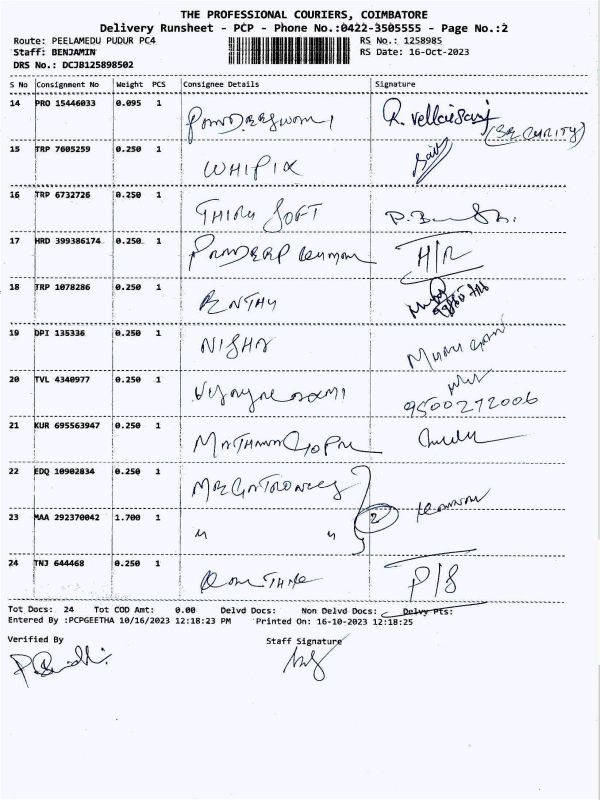 THE PROFESSIONAL COURIERS, COIMBATORE
Delivery Runsheet - PCP - Phone No.:0422-3505555 - Page No.:2
Route: PEELAMEDU PUDUR PC4 RS No.: 1258985
Staff: BENJAMIN RS Date: 16-Oct-2023
DRS No.: DCJB125898502
S No Consignment No Weight PCS Consignee Details Signature
14 PRO 15446033 0.095 1 R. vellaisamy
(SECURITY)
15 TRP 7605259 0.250 1 WHIPIX
16 TRP 6732726 0.250 1 THIRU SOFT
17 HRD 399386174 0.250 1 PRADEEP kumar H/R
18 TRP 1078286 0.250 1 ENTHU
19 DPI 135336 0.250 1 NISHA Murugan
20 TVL 4340977 0.250 1 9500272006
21 KUR 695563947 0.250 1 MATHANAGOPAL
22 EDQ 10902834 0.250 1
23 MAA 292370042 1.700 1 " " 2
24 TNJ 644468 0.250 1 P/S
Tot Docs: 24 Tot COD Amt: 0.00 Delvd Docs: Non Delvd Docs: Delvy Pts:
Entered By :PCPGEETHA 10/16/2023 12:18:23 PM Printed On: 16-10-2023 12:18:25
Verified By Staff Signature